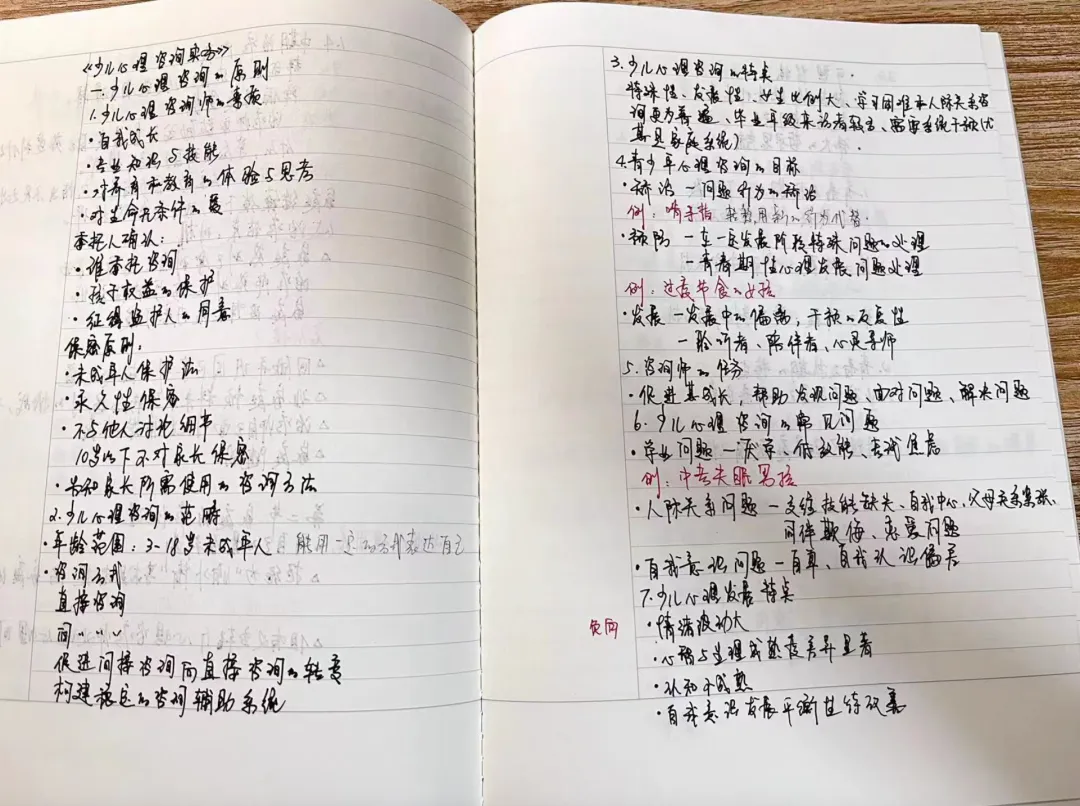 《少儿心理咨询实务》
一.少儿心理咨询的原则
1.少儿心理咨询师的素质
·自我成长
·专业知识与技能
·对养育和教育的体验与思考
·对生命无条件的爱
委托人确认:
·谁委托咨询
·孩子权益的保护
·征得监护人的同意
保密原则:
·未成年人保护法
·永久性保密
·不与他人讨论细节
10岁以下不对家长保密
·告知家长所需使用的咨询方法
2.少儿心理咨询的范畴
·年龄范围:3-18岁未成年人 能用一定的方式表达自己
·咨询方式
直接咨询
间〃〃〃
促进间接咨询向直接咨询的转变
构建稳定的咨询辅助系统
3.少儿心理咨询的特点
特殊性、发展性、女生比例大、学习困难和人际关系咨
询更为普遍、毕业年级来访者较多、需要系统干预(尤
其是家庭系统)
4.青少年心理咨询的目标
·矫治一问题行为的矫治
例:啃手指 找替用新的行为代替.
·预防 一在一定发展阶段特殊问题的处理
一青春期性心理发展问题处理
例:过度节食的女孩
·发展一发展中的偏离,干预的反复性
一聆听者、陪伴者、心灵导师
5.咨询师的任务
·促进其成长,帮助发现问题、面对问题、解决问题
6.少儿心理咨询的常见问题
·学业问题一厌学、低效能、考试焦虑
例:中考失眠男孩
·人际关系问题一交往技能缺失、自我中心、父母关系紧张、
同伴欺侮、恋爱问题
·自我意识问题一自卑、自我认识偏差
7.少儿心理发展特点
·情绪波动大
·心理与生理成熟度差异显著
·认知不成熟
·自我意识发展平衡性待改善